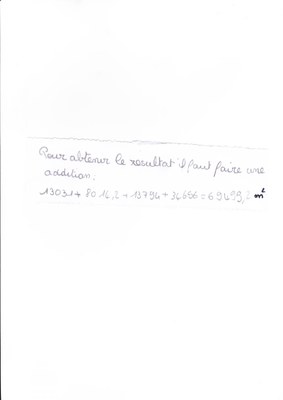 Pour obtenir le resultat il faut faire une
addition:
13031 + 8014,2 + 13794 + 34656 = 69499,2 m²